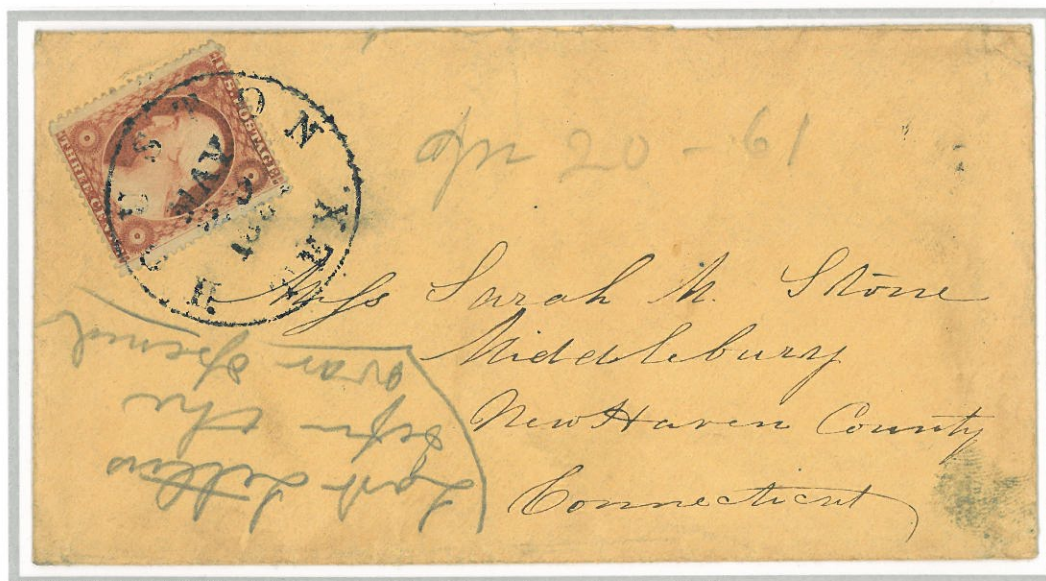 U.S. POSTAGE
THREE CENTS
HOUSTON TEX.
MAY
Apr 20 - 61
Miss Sarah M. Stone
Middlebury
New Haven County
Connecticut
Last Letters
the
war opened